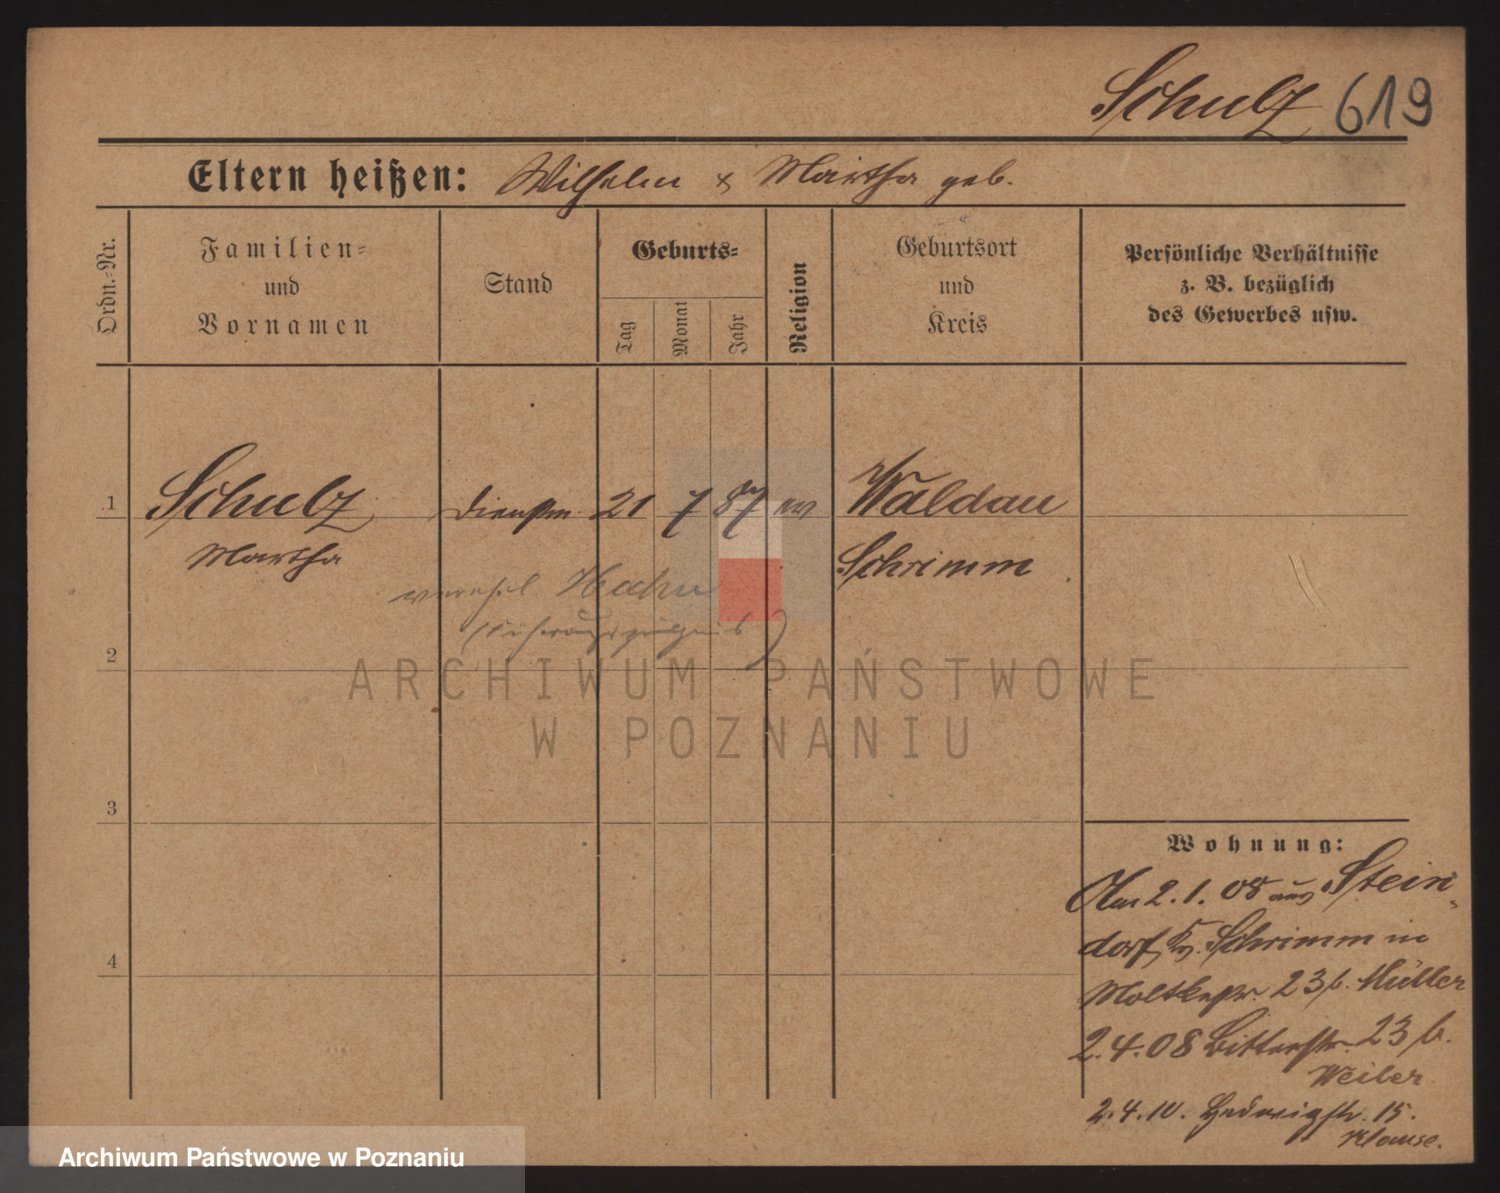 Schulz 619
Eltern heißen: Wilhelm & Martha geb.
Ordn.-Nr.
Familien-
und
Vornamen
Stand
Geburts-
Tag
Monat
Jahr
Religion
Geburtsort
und
Kreis
Persönliche Verhältnisse
z. B. bezüglich
des Gewerbes usw.
1 Schulz Dienstm. 21 7 87 ev Waldau
Martha Schrimm
verehel. Hahn
2
3
4
Wohnung:
Am 2.1.08 aus Stein-
dorf, Kr. Schrimm in
Moltkestr. 23 b. Müller
2.4.08 Bitterstr. 23 b.
Weiler
2.4.10. Hedwigstr. 15.
Klause.
ARCHIWUM PAŃSTWOWE
W POZNANIU
Archiwum Państwowe w Poznaniu